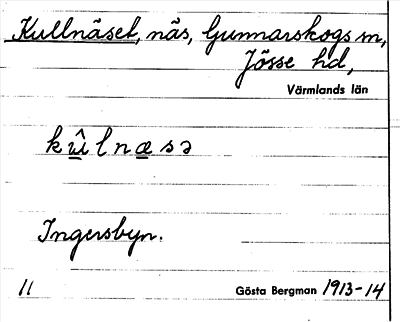 Kullnäset, näs, Gunnarskogs sn,
Jösse hd,
Värmlands län
Ingersbyn.
11 Gösta Bergman 1913-14